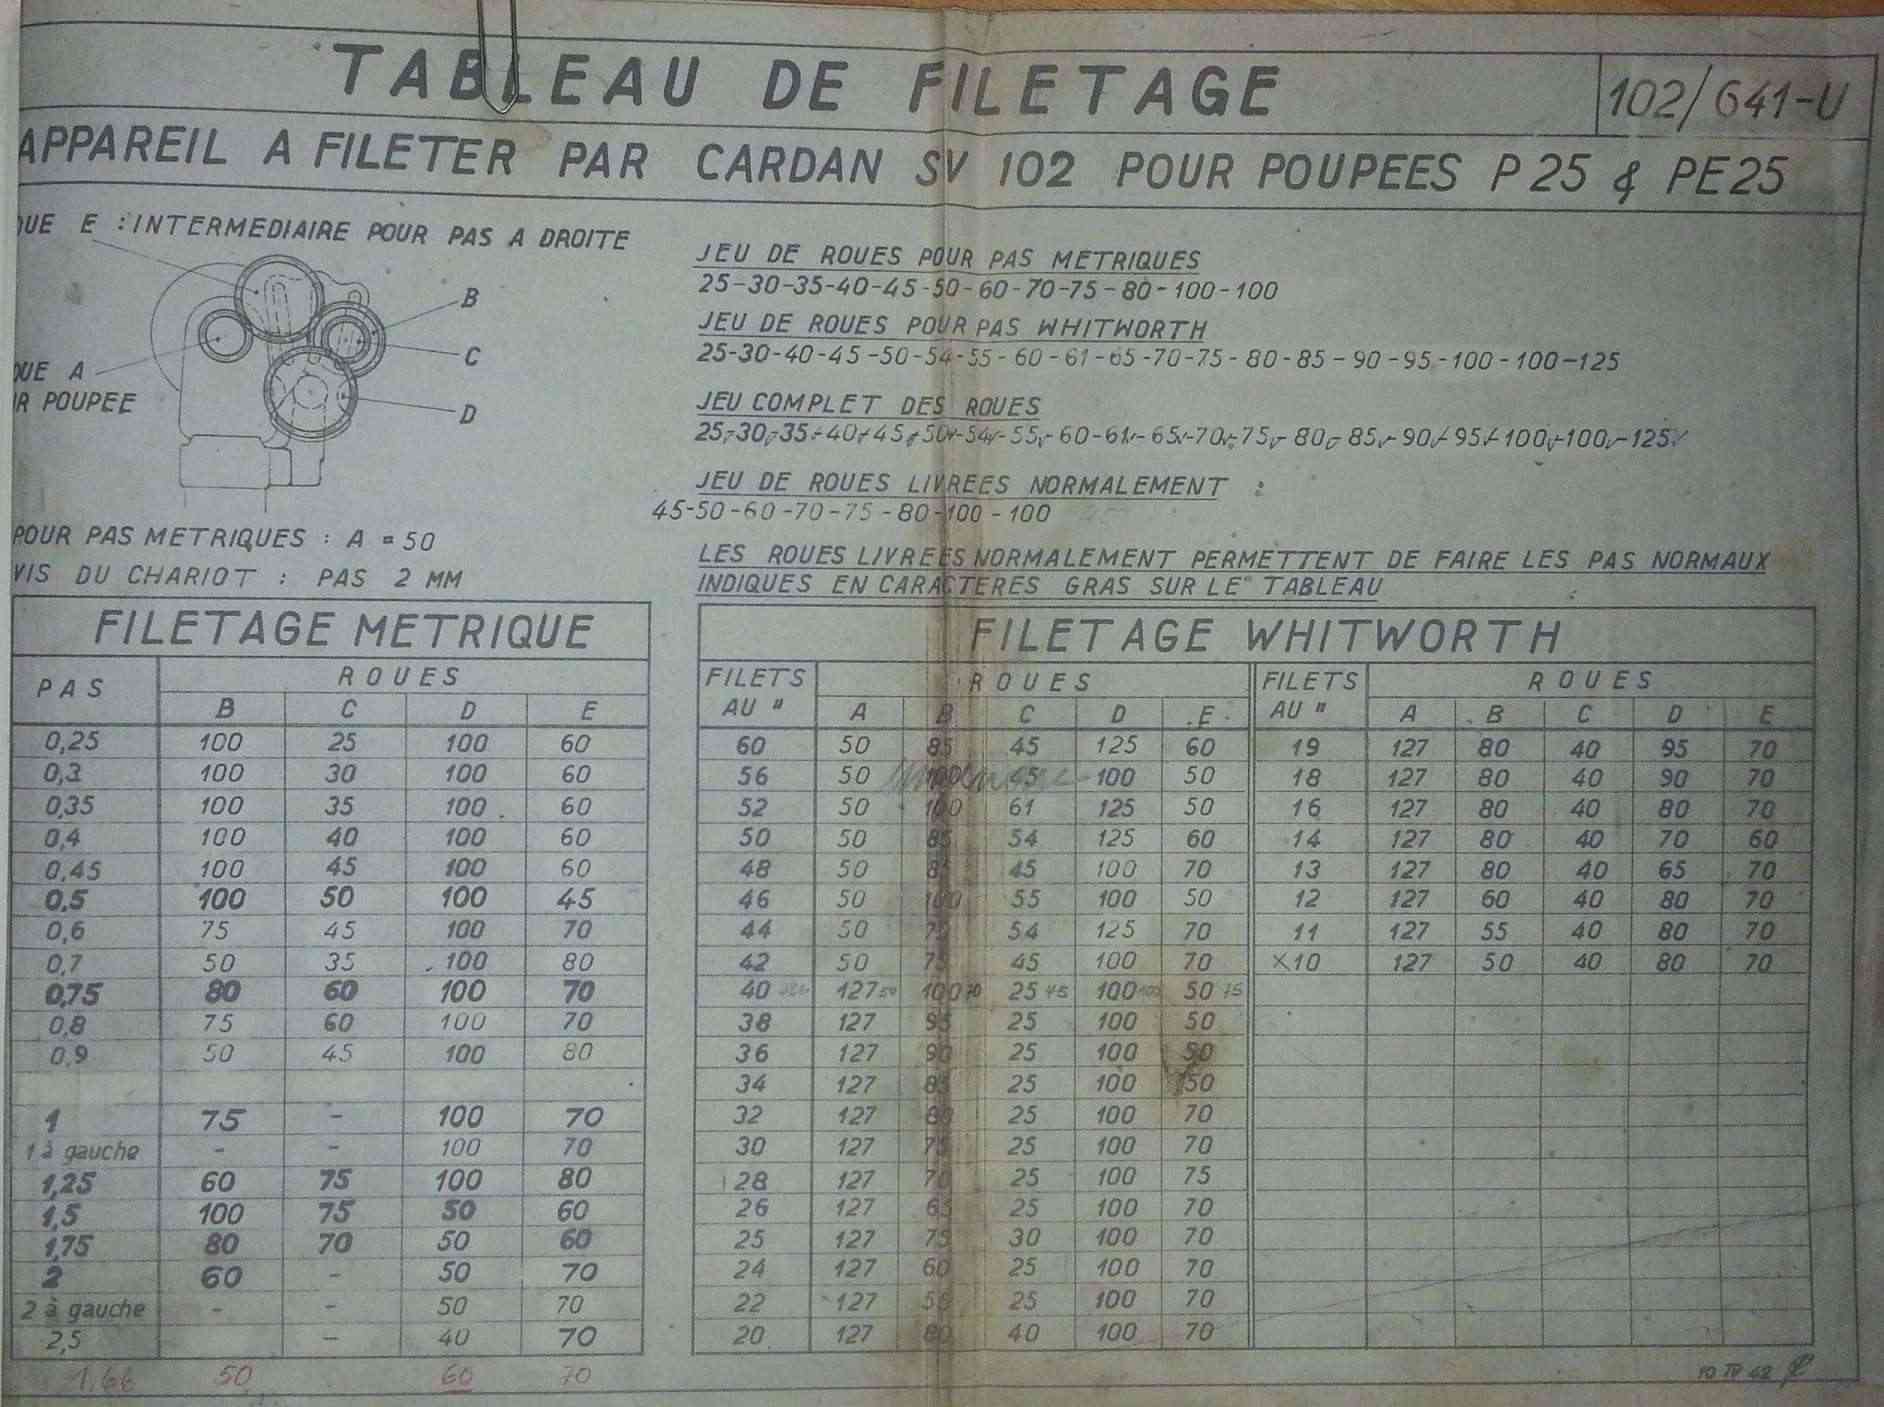 TABLEAU DE FILETAGE
102/641-U
APPAREIL A FILETER PAR CARDAN SV 102 POUR POUPEES P 25 & PE 25
UE E : INTERMEDIAIRE POUR PAS A DROITE
B
C
UE A
R POUPEE
D
JEU DE ROUES POUR PAS METRIQUES
25-30-35-40-45-50-60-70-75-80-100-100
JEU DE ROUES POUR PAS WHITWORTH
25-30-40-45-50-54-55-60-61-65-70-75-80-85-90-95-100-100-125
JEU COMPLET DES ROUES
25-30-35-40-45-50-54-55-60-61-65-70-75-80-85-90-95-100-100-125
JEU DE ROUES LIVREES NORMALEMENT :
45-50-60-70-75-80-100-100
LES ROUES LIVREES NORMALEMENT PERMETTENT DE FAIRE LES PAS NORMAUX
INDIQUES EN CARACTERES GRAS SUR LE TABLEAU
POUR PAS METRIQUES : A = 50
VIS DU CHARIOT : PAS 2 MM
FILETAGE METRIQUE
PAS ROUES
B C D E
0,25 100 25 100 60
0,3 100 30 100 60
0,35 100 35 100 60
0,4 100 40 100 60
0,45 100 45 100 60
0,5 100 50 100 45
0,6 75 45 100 70
0,7 50 35 100 80
0,75 80 60 100 70
0,8 75 60 100 70
0,9 50 45 100 80
1 75 - 100 70
1 à gauche - - 100 70
1,25 60 75 100 80
1,5 100 75 50 60
1,75 80 70 50 60
2 60 - 50 70
2 à gauche - - 50 70
2,5 - 40 70
1,66 50 60 70
FILETAGE WHITWORTH
FILETS AU " ROUES
A B C D E
60 50 85 45 125 60
56 50 100 45 100 50
52 50 100 61 125 50
50 50 85 54 125 60
48 50 85 45 100 70
46 50 100 55 100 50
44 50 75 54 125 70
42 50 75 45 100 70
40 127 50 100 70 25 45 100 100 50 75
38 127 95 25 100 50
36 127 90 25 100 50
34 127 85 25 100 50
32 127 80 25 100 70
30 127 75 25 100 70
28 127 70 25 100 75
26 127 65 25 100 70
25 127 75 30 100 70
24 127 60 25 100 70
22 127 55 25 100 70
20 127 80 40 100 70
FILETS AU " ROUES
A B C D E
19 127 80 40 95 70
18 127 80 40 90 70
16 127 80 40 80 70
14 127 80 40 70 60
13 127 80 40 65 70
12 127 60 40 80 70
11 127 55 40 80 70
×10 127 50 40 80 70
10 IV 62